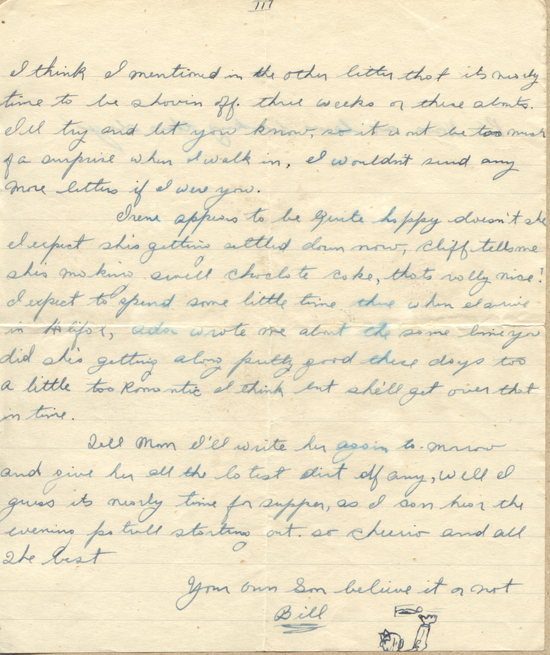 III
I think I mentioned in the other letter that its nearly
time to be shovin off. three weeks or there abouts.
I'll try and let you know, so it wont be too much
of a surprise when I walk in, I wouldn't send any
more letters if I were you.
Irene appears to be quite happy doesn't she
I expect shes getting settled down now, Cliff tells me
shes making swell choclate cake, thats really nice!
I expect to spend some little time there when I arrive
in Halifax, wrote me about the same time you
did shes getting along pretty good these days too
a little too Romantic I think but she'll get over that
in time.
Tell Mom I'll write her again to-morrow
and give her all the latest dirt if any, well I
guess its nearly time for supper, as I can hear the
evening patroll starting out. so cheerio and all
the best
Your own Son believe it or not
Bill